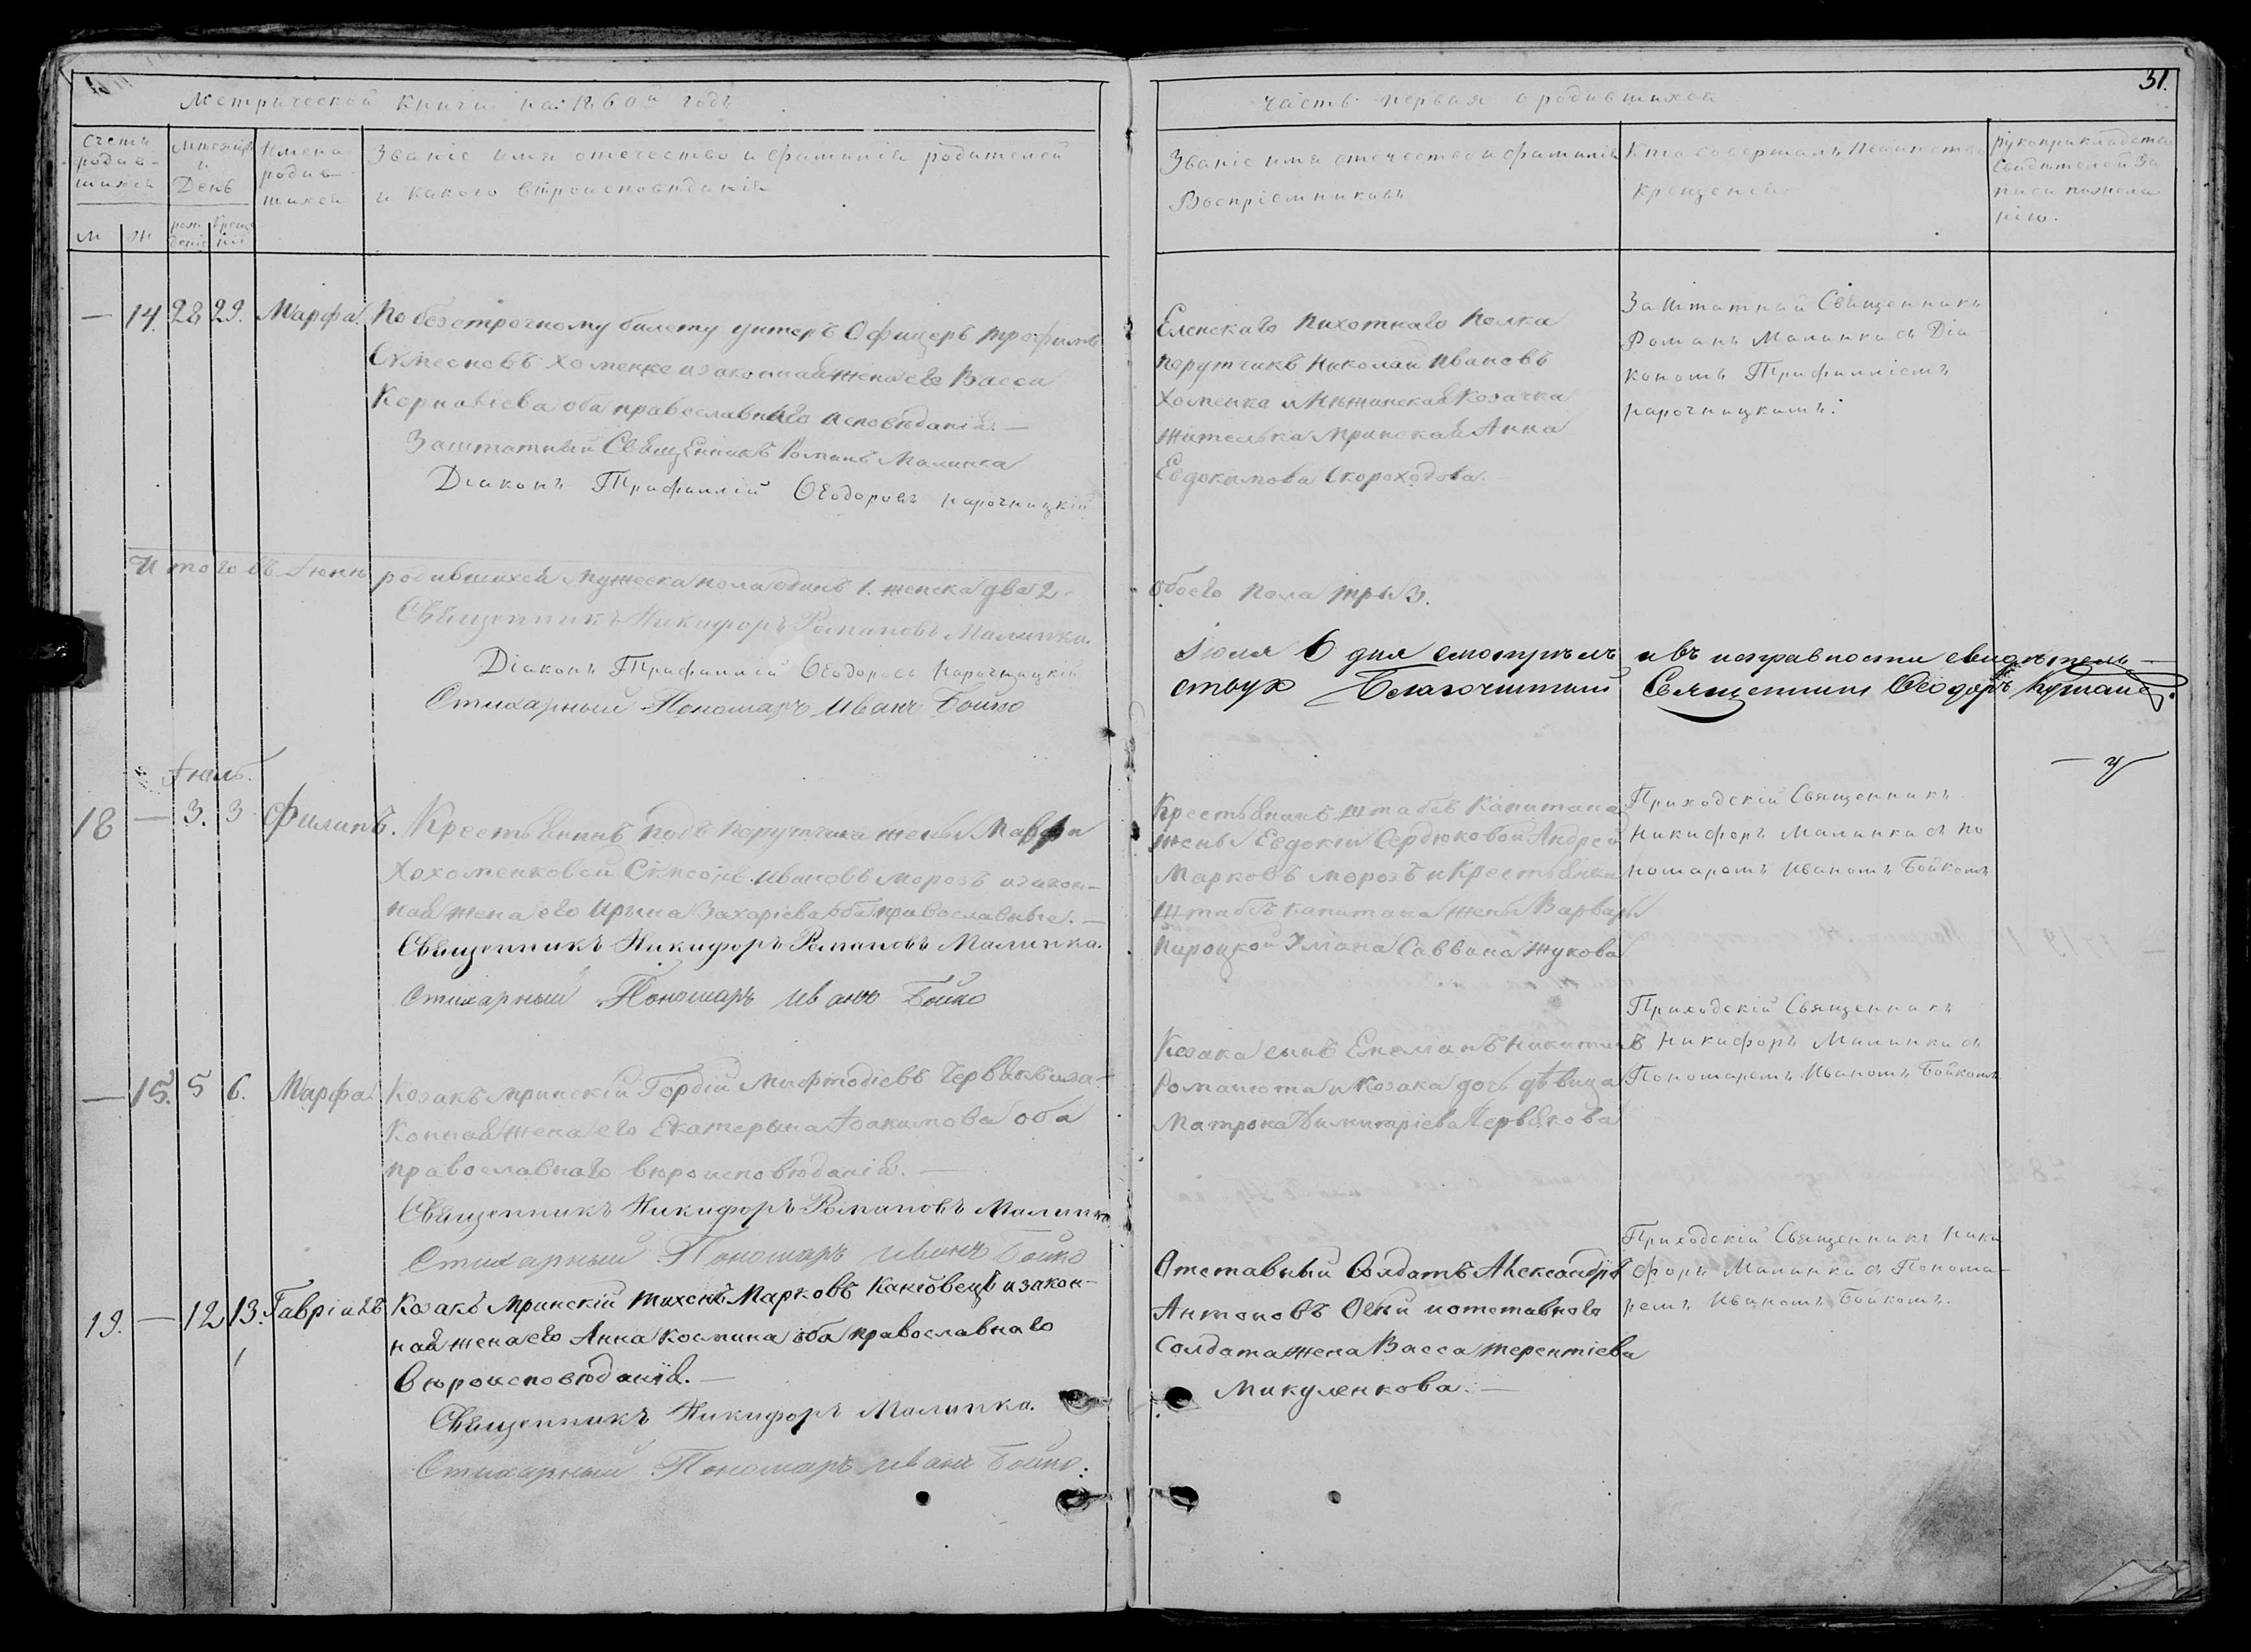 Метрической книги на 1860й годъ
часть первая о родившихся
31.
Счетъ родив-шихся
М
Ж
Мѣсяцъ и День
рож-деніе
креще-ніе
Имена родив-шихся
Званіе имя отечество и фамилія родителей
и какого вѣроисповѣданія
Званіе имя отечество и фамилія
Воспріемниковъ
Кто совершалъ таинство
крещенія
рукоприкладство
свидѣтелей за
писи пожела
нію.
— 14. 28 29. Марфа.
По безстрочному билету унтеръ Офицеръ Трофимъ
Сѵмеоновъ Хоменко и законная жена его Васса
Корниліева оба православнаго исповѣданія. —
Заштатный Священникъ Романъ Малинка
Діаконъ Трифиллій Ѳеодоровъ Нарочницкій
Еленскаго Пихотнаго Полка
порутчикъ Николай Ивановъ
Хоменко и Нѣжинская Козачка
жителька Мринская Анна
Евдокимова Скороходова.
Заштатный Священникъ
Романъ Малинка съ Діа-
кономъ Трифилліемъ
Нарочницкимъ.
Итого въ Іюнѣ родившихся мужеска пола одинъ 1. женска два 2
обоего пола три 3.
Священникъ Никифоръ Романовъ Малинка.
Діаконъ Трифиллій Ѳеодоровъ Нарочницкій
Стихарный Пономарь Иванъ Бойко
Іюля 6 дня смотрѣлъ и въ исправности свидѣтель-
ствую Благочинный Священникъ Ѳеодоръ
Іюль.
18 — 3. 3 Филипъ.
Крестьянинъ подъ порутчика жены Марфы
Хохоменковой Сѵмеонъ Ивановъ Морозъ и закон-
ная жена его Ирына Захаріева оба православные. —
Священникъ Никифоръ Романовъ Малинка.
Стихарный Пономарь Иванъ Бойко
Крестьянинъ Штабсъ Капитана
жены Евдокіи Сердюковой Андрей
Марковъ Морозъ и Крестьянка
Штабсъ капитана жены Варвары
Пироцкой Саввина Жукова
Приходскій Священникъ
Никифоръ Малинка съ По
номаремъ Иваномъ Бойкомъ
— 15. 5 6. Марфа.
Козакъ Мринскій Гордій Мифтодіевъ Червякъ и за-
конная жена его Екатерына Іоакимова оба
православнаго вѣроисповѣданія. —
Священникъ Никифоръ Романовъ Малинка
Стихарный Пономарь Иванъ Бойко
Козака сынъ Никитинъ
Романюта и Козака дочь дѣвица
Матрона Димитріева Червякова
Приходскій Священникъ
Никифоръ Малинка съ
Пономаремъ Иваномъ Бойкомъ
19. — 12 13. Гавріилъ
Козакъ Мринскій Тихонъ Марковъ Канювецъ и закон-
ная жена его Анна Космина оба православнаго
вѣроисповѣданія. —
Священникъ Никифоръ Малинка.
Стихарный Пономарь Иванъ Бойко.
Отставный Солдатъ Александръ
Антоновъ и отставного
Солдата жена Васса Терентіева
Микуленкова. —
Приходскій Священникъ Ники
форъ Малинка съ Понома-
ремъ Иваномъ Бойкомъ.